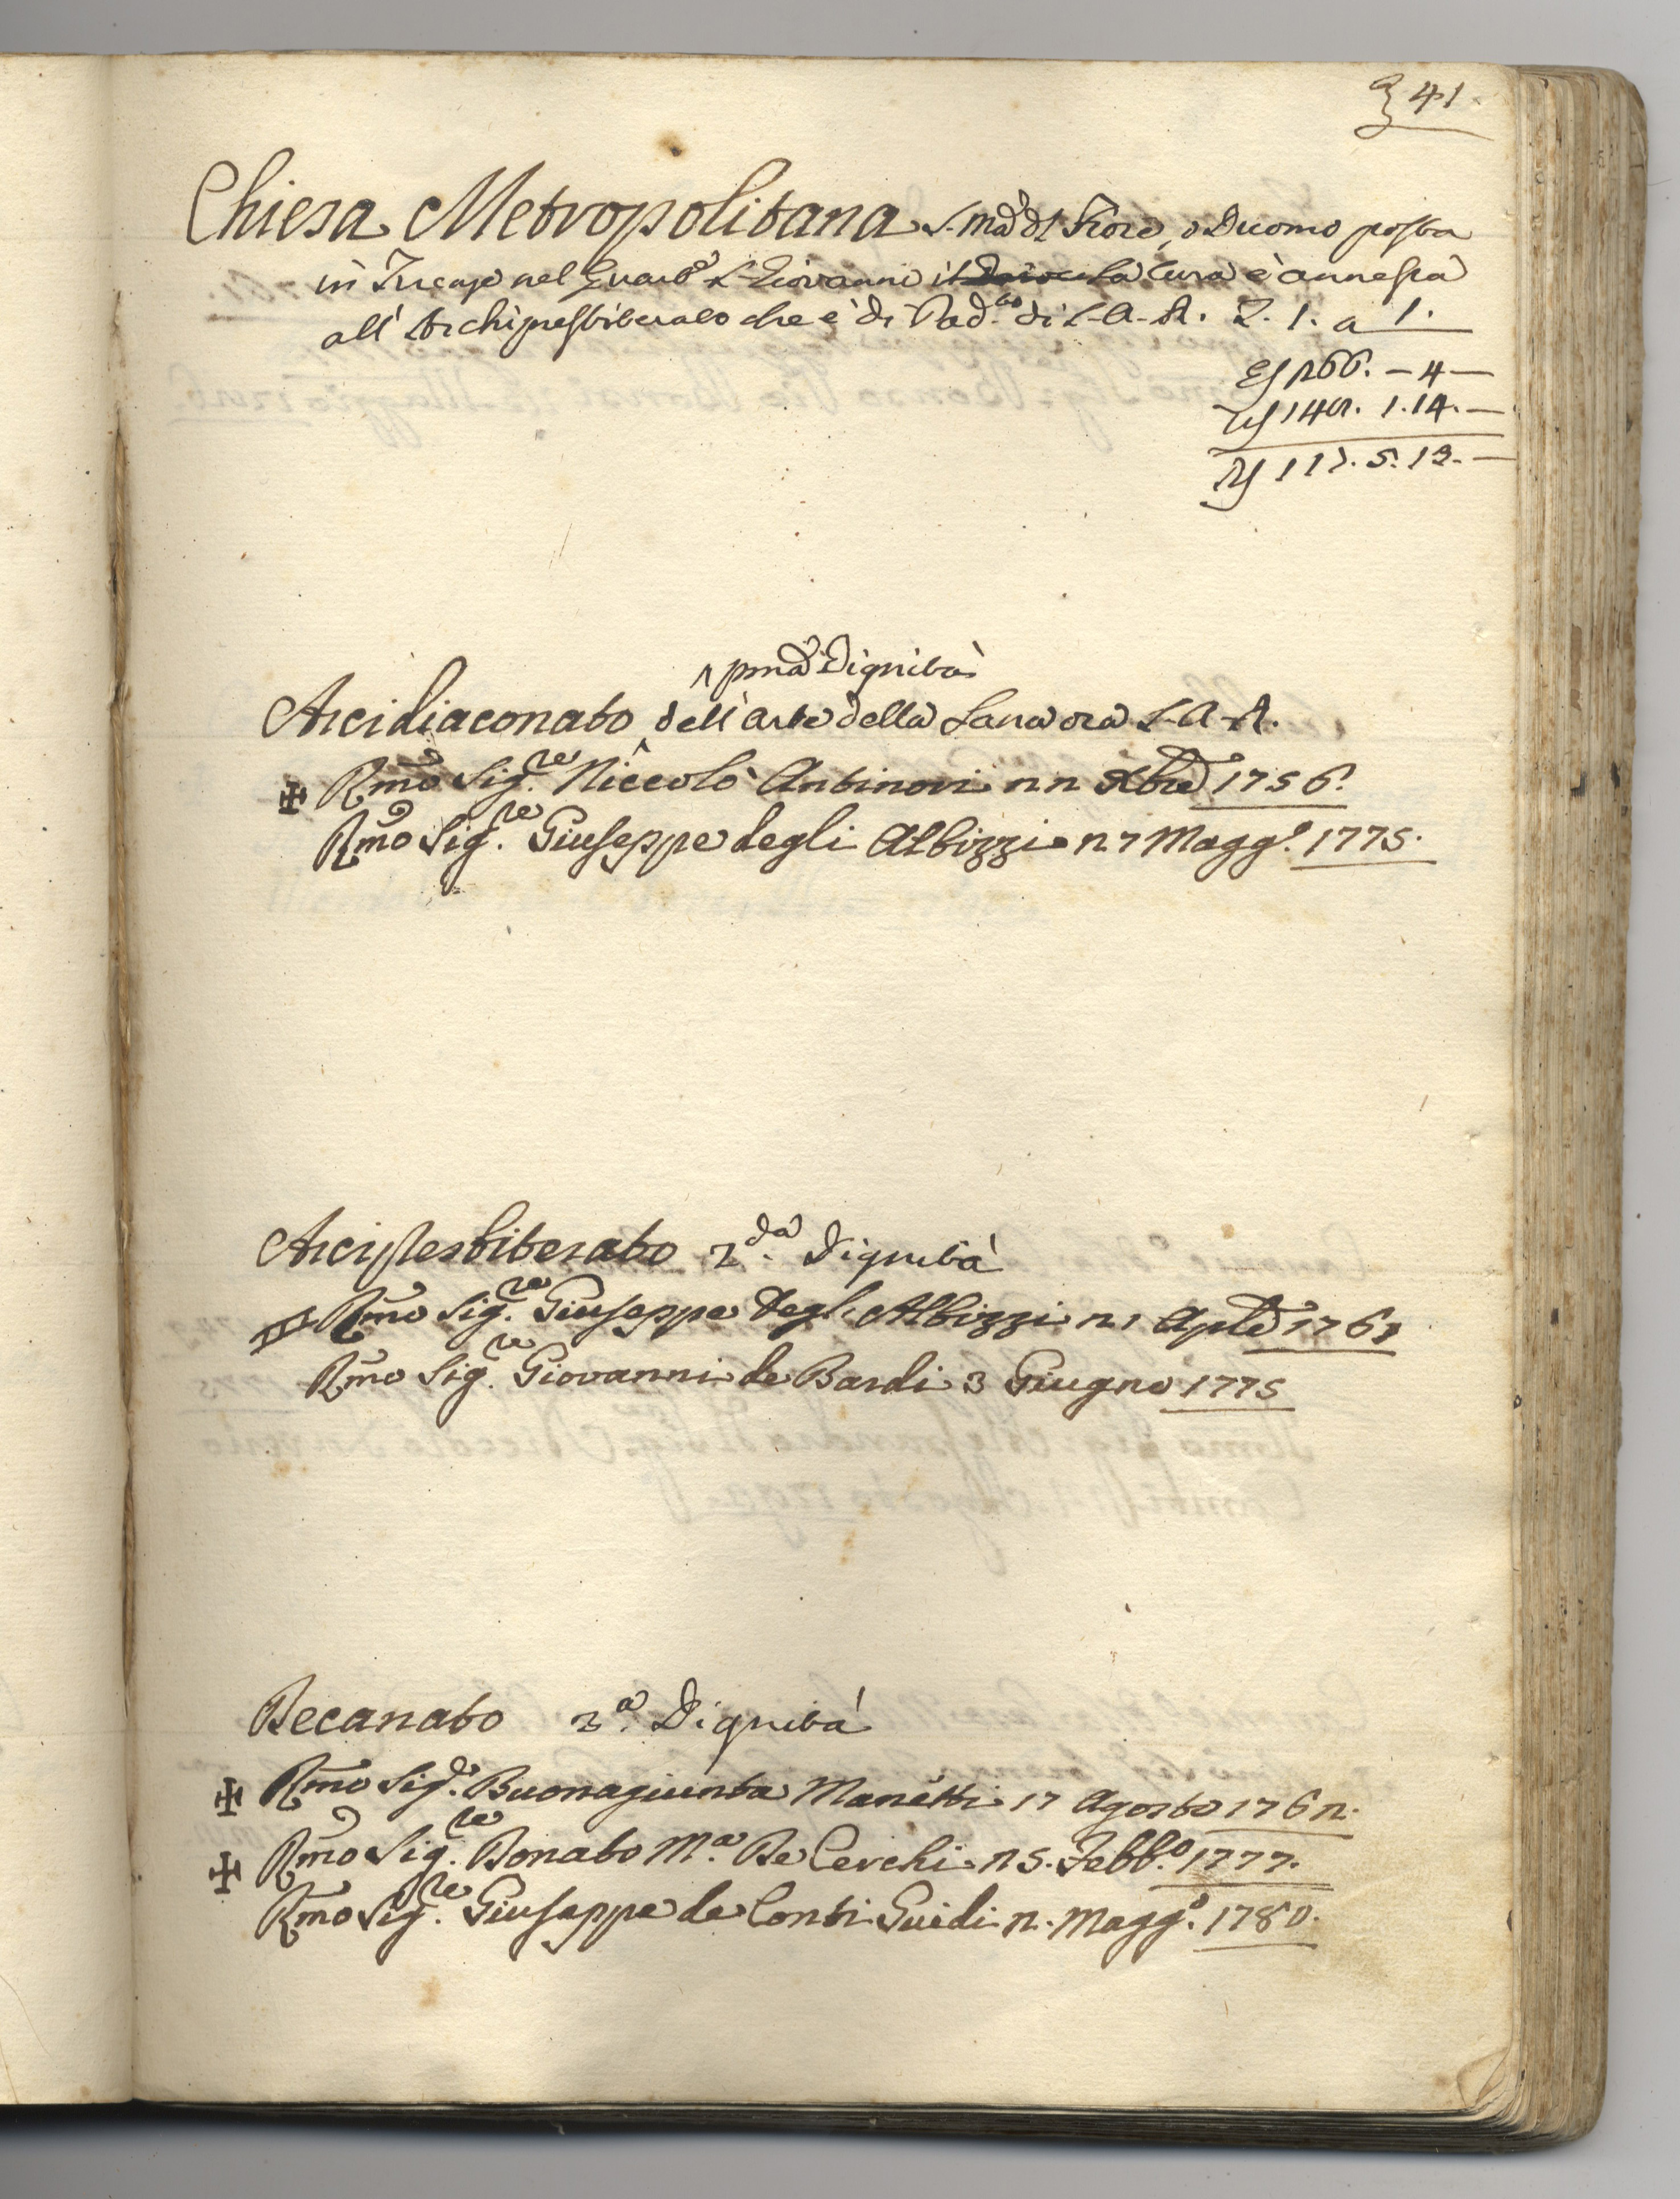 41
Chiesa Metropolitana S. Ma dl Fiore, o Duomo posta
in Firenze nel Quart.o S. Giovanni la Cura è annessa
all' Archipresbiterato che è di Pad.to di S. A. R. Z. 1. a 1.
266. - 4 -
149. 1. 14. -
117. 5. 13. -
^ pma Dignità
Arcidiaconato dell' Arte della Lana ora S. A. R.
✠ Rmo Sig.re Niccolò Antinori 22 Xbre 1756.
Rmo Sig.re Giuseppe degli Albizzi 27 Magg.o 1775.
Arcipresbiterato 2.da Dignità
Rmo Sig.re Giuseppe degl' Albizzi 21 Aple 1761
Rmo Sig.re Giovanni de Bardi 3 Giugno 1775
Decanato 3.a Dignità
✠ Rmo Sig.re Buonagiunta Manetti 17 Agosto 1762.
✠ Rmo Sig.re Donato M.a De Cerchi 25. Febb.o 1777.
Rmo Sig.re Giuseppe de Conti Guidi 2. Magg.o 1780.